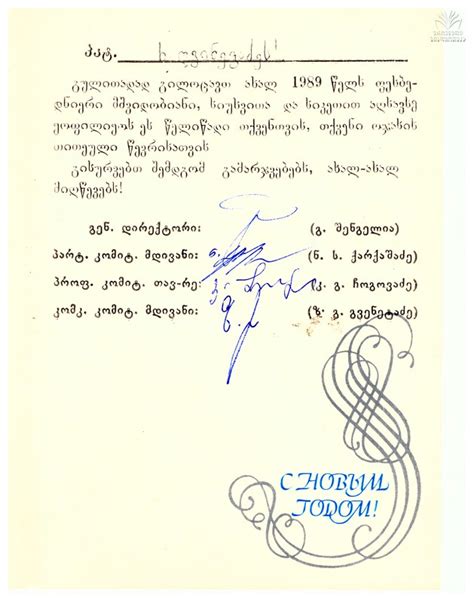 პატ.
გულითადად გილოცავთ ახალ 1989 წელს ფეხბედნიერი მშვიდობიანი, სიუხვითა და სიკეთით აღსავსე
ყოფილიყოს ეს წელიწადი თქვენთვის, თქვენი ოჯახის
თითეული წევრისათვის
გისურვებთ შემდგომ გამარჯვებებს, ახალ-ახალ
მიღწევებს!
გენ. დირექტორი: (გ. შენგელია)
პარტ. კომიტ. მდივანი: (ნ. ს. ქარქაშაძე)
პროფ. კომიტ. თავ-რე: (კ. გ. ჩოგოვაძე)
კომკ. კომიტ. მდივანი: (ზ. გ. გვენეტაძე)
С НОВЫМ
ГОДОМ!